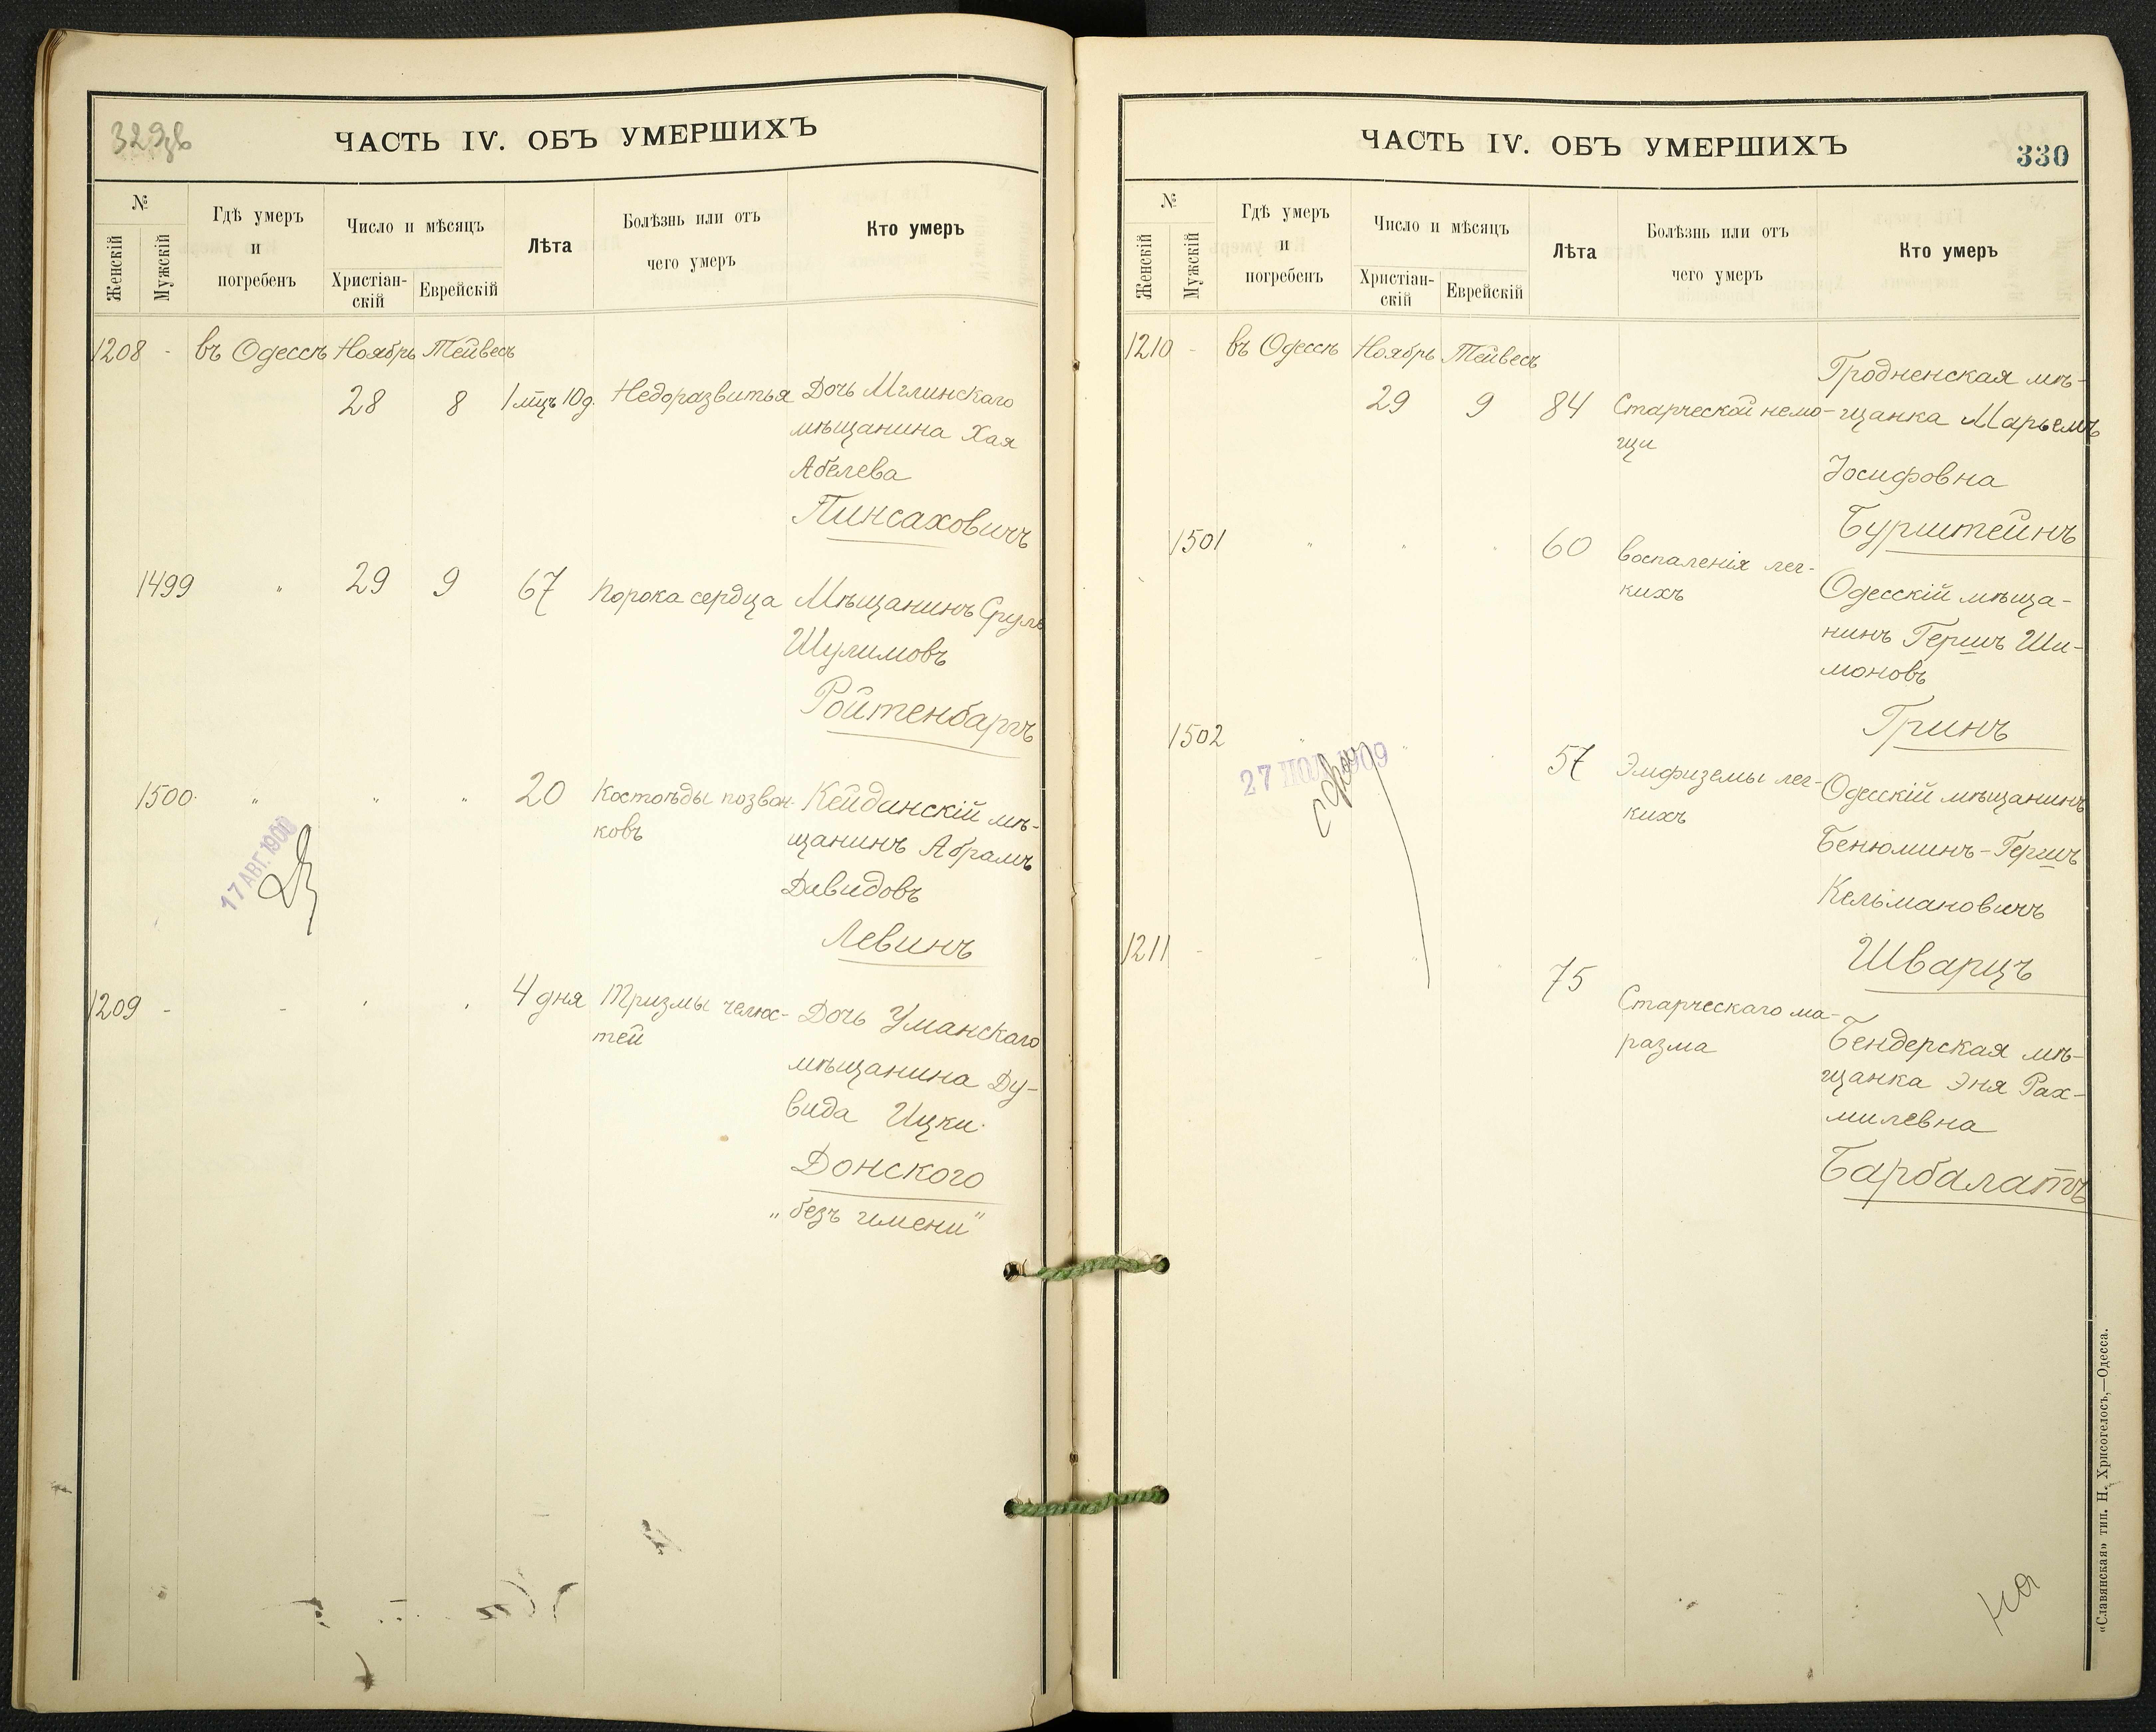 329зв
ЧАСТЬ IV. ОБЪ УМЕРШИХЪ
№
Женскій
Мужскій
Гдѣ умеръ
и
погребенъ
Число и мѣсяцъ
Христіан-
скій
Еврейскій
Лѣта
Болѣзнь или отъ
чего умеръ
Кто умеръ
1208 - въ Одессѣ Ноябрь Тейвесъ
28 8 1 мцъ 10 д. Недоразвитья Дочь Мглинскаго
мѣщанина Хая
Абелева
Пинсаховичъ
1499 " 29 9 67 Порока сердца Мѣщанинъ Сруль
Шулимовъ
Ройтенбаргъ
1500 " " " 20 Костоѣды позвон- Кейданскій мѣ-
ковъ
щанинъ Абрамъ
Давидовъ
Левинъ
17 АВГ. 1900
1209 - - 4 дня Тризмы челюс- Дочь Уманскаго
тей
мѣщанина Ду-
вида Ицки
Донского
"безъ имени"
ЧАСТЬ IV. ОБЪ УМЕРШИХЪ
330
№
Женскій
Мужскій
Гдѣ умеръ
и
погребенъ
Число и мѣсяцъ
Христіан-
скій
Еврейскій
Лѣта
Болѣзнь или отъ
чего умеръ
Кто умеръ
1210 - въ Одессѣ Ноябрь Тейвесъ
29 9 84 Старческой немо-
щи
Гродненская мѣ-
щанка Марьемъ
Іосифовна
Бурштейнъ
1501 " " " 60 воспаленія лег-
кихъ
Одесскій мѣща-
нинъ Гершъ Ши-
моновъ
Гринъ
1502 " " 57 Эмфиземы лег-
кихъ
Одесскій мѣщанинъ
Бенюминъ-Гершъ
Кельмановичъ
Шварцъ
1211 - - 75 Старческаго ма-
разма
Бендерская мѣ-
щанка Эня Рах-
милевна
Барбалатъ
«Славянская» тип. Н. Хрисогелосъ,—Одесса.